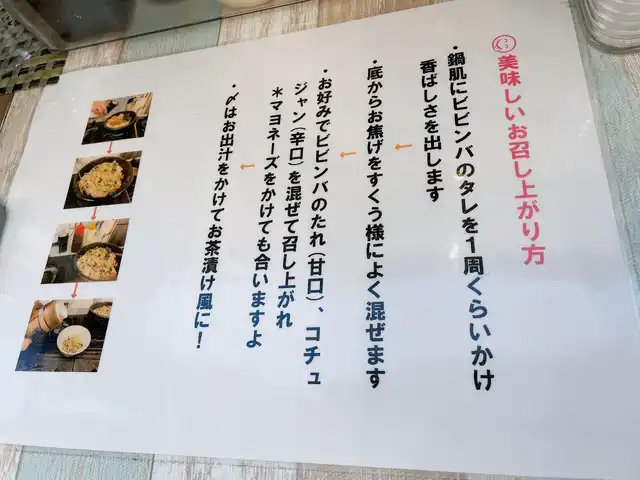 美味しいお召し上がり方
・鍋肌にビビンバのタレを1周くらいかけ
香ばしさを出します
・底からお焦げをすくう様によく混ぜます
・お好みでビビンバのたれ（甘口）、コチュ
ジャン（辛口）を混ぜて召し上がれ
＊マヨネーズをかけても合いますよ
・〆はお出汁をかけてお茶漬け風に！